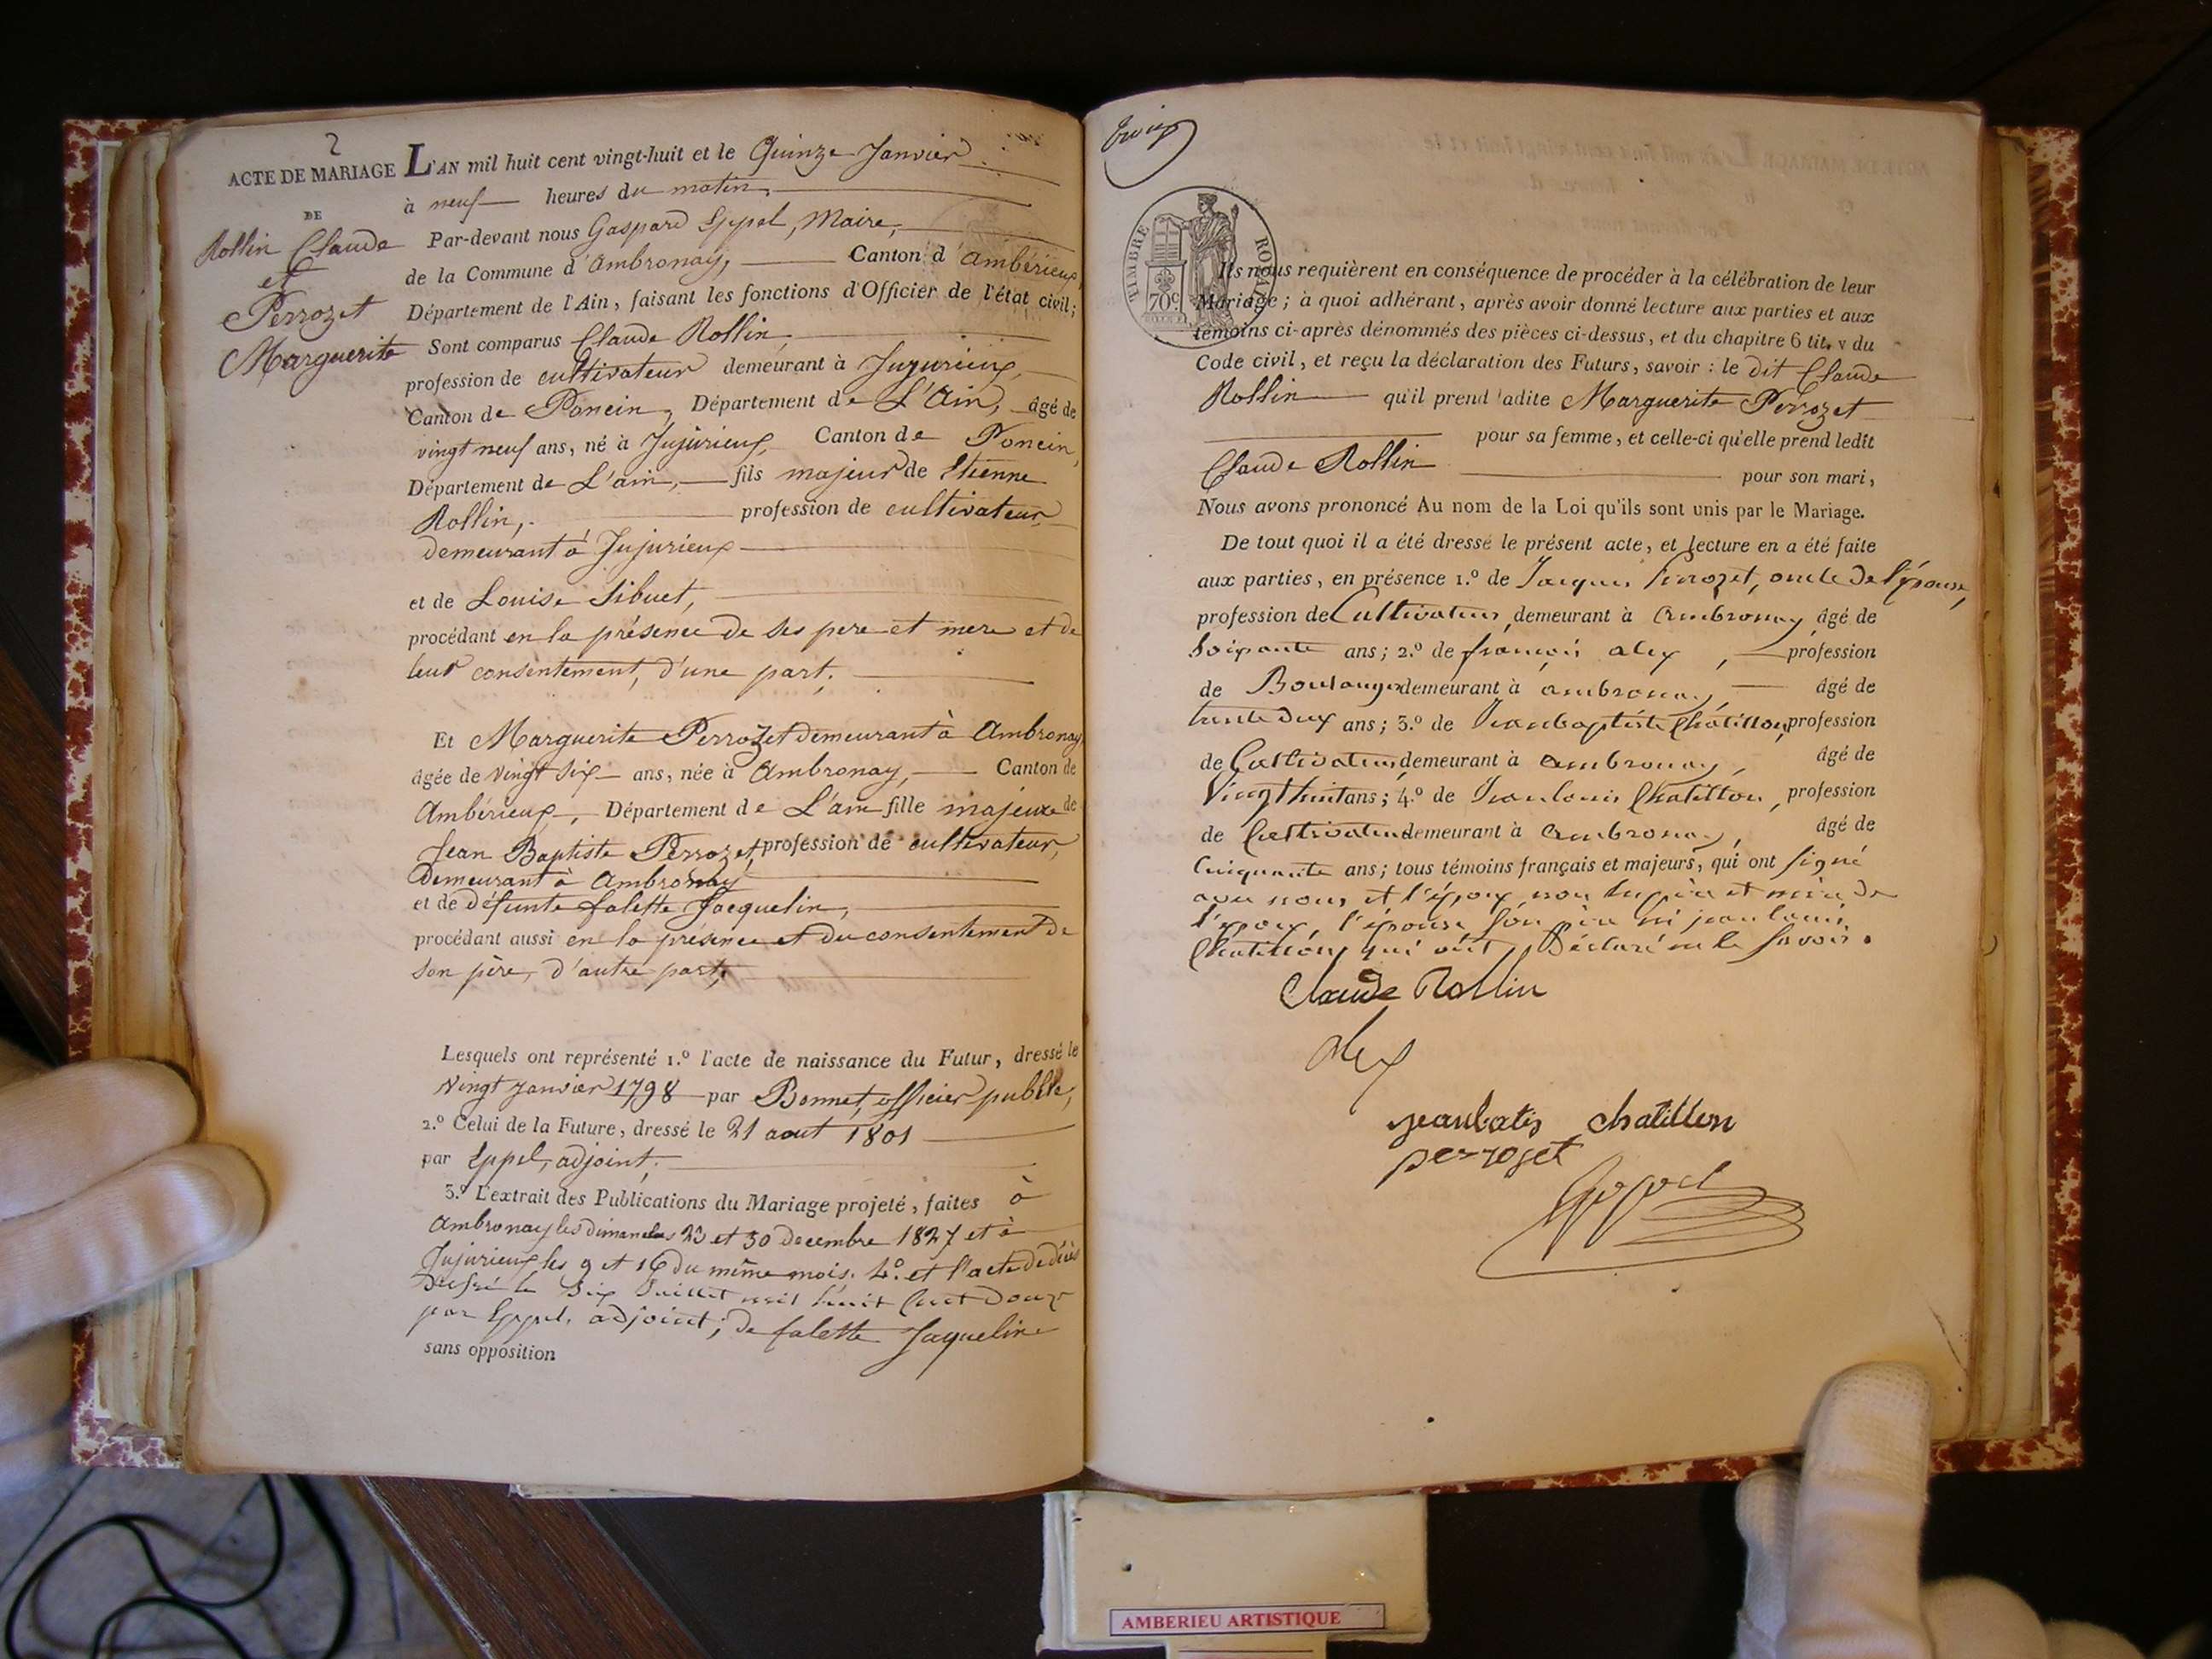 2
ACTE DE MARIAGE
DE
Rollin Claude
et
Perrozet
Marguerite
L'AN mil huit cent vingt-huit et le Quinze Janvier
à neuf heures du matin,
Par-devant nous Gaspard Eppel, Maire,
de la Commune d'Ambronay, Canton d'Ambérieux,
Département de l'Ain, faisant les fonctions d'Officier de l'état civil;
Sont comparus Claude Rollin,
profession de cultivateur demeurant à Jujurieux,
Canton de Poncin, Département de L'Ain, âgé de
vingt neuf ans, né à Jujurieux, Canton de Poncin,
Département de L'ain, fils majeur de Etienne
Rollin, profession de cultivateur
demeurant à Jujurieux
et de Louise Sibuet,
procédant en la présence de ses pere et mere et de
leur consentement, d'une part;
Et Marguerite Perrozet demeurant à Ambronay
âgée de vingt six ans, née à Ambronay, Canton de
Ambérieux, Département de L'ain fille majeure de
Jean Baptiste Perrozet, profession de cultivateur,
Demeurant à Ambronay
et de défunte falette Jacquelin,
procédant aussi en la présence et du consentement de
son père, d'autre part;
Lesquels ont représenté 1.º l'acte de naissance du Futur, dressé le
vingt Janvier 1798 par Bonnet, officier public,
2.º Celui de la Future, dressé le 21 aout 1801
par Eppel, adjoint;
3.º L'extrait des Publications du Mariage projeté, faites à
Ambronay les dimanches 23 et 30 decembre 1827 et à
Jujurieux les 9 et 16 du même mois. 4.º et l'acte de décès
Dressé le Juillet mil huit Cent Douze
par Eppel, adjoint; de falette Jaqueline
sans opposition
TIMBRE ROYAL
70c.
Ils nous requièrent en conséquence de procéder à la célébration de leur
Mariage; à quoi adhérant, après avoir donné lecture aux parties et aux
témoins ci-après dénommés des pièces ci-dessus, et du chapitre 6 tit. v du
Code civil, et reçu la déclaration des Futurs, savoir : le dit Claude
Rollin qu'il prend ladite Marguerite Perrozet
pour sa femme, et celle-ci qu'elle prend ledit
Claude Rollin pour son mari,
Nous avons prononcé Au nom de la Loi qu'ils sont unis par le Mariage.
De tout quoi il a été dressé le présent acte, et lecture en a été faite
aux parties, en présence 1.º de Jacques Perrozet, oncle de l'épouse,
profession de Cultivateur, demeurant à Ambronay, âgé de
Soixante ans; 2.º de françois alex, profession
de Boulanger demeurant à ambronay, âgé de
trente deux ans; 3.º de Jeanbaptiste Châtillon, profession
de Cultivateur, demeurant à ambronay, âgé de
Vingt huit ans; 4.º de Jean louis Chatillon, profession
de Cultivateur demeurant à Ambronay, âgé de
Cinquante ans; tous témoins français et majeurs, qui ont signé
avec nous et l'époux non les père et mère de
l'époux, l'épouse son père ni jean louis
Chatillon qui ont Déclaré ne le Savoir.
Claude Rollin
Alex
jeanbatis chatillon
perroset
Eppel
AMBERIEU ARTISTIQUE